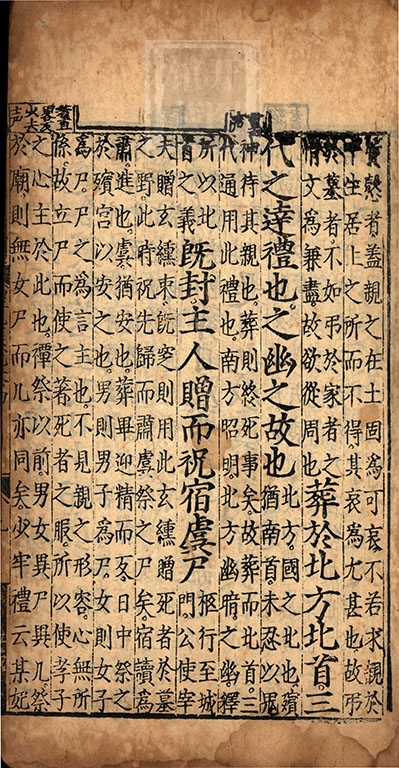 慤者蓋親之在土固爲可哀不若求親於
平生居止之所而不得其哀爲尤甚也故弔
於墓者不如弔於家者之
情文爲兼盡故欲從周也
葬於北方北首三
代之達禮也之幽之故也
北方國之北也殯
猶南首未忍以鬼
神待其親也葬則終死事矣故葬而北首三
代通用此禮也南方昭明北方幽暗之幽釋
所以北
首之義
既封主人贈而祝宿虞尸
柩行至城
門公使宰
夫贈玄纁束既窆則用此玄纁贈死者於墓
之野此時祝先歸而肅虞祭之尸矣宿讀爲
肅進也虞猶安也葬畢迎精而反日中祭之
於殯宮以安之也男則男子爲尸女則女子
爲尸尸之爲言主也不見親之形容心無所
係故立尸而使之著死者之服所以使孝子
之心主於此也禫祭以前男女異尸異几祭
於廟則無女尸而几亦同矣少牢禮云某妃